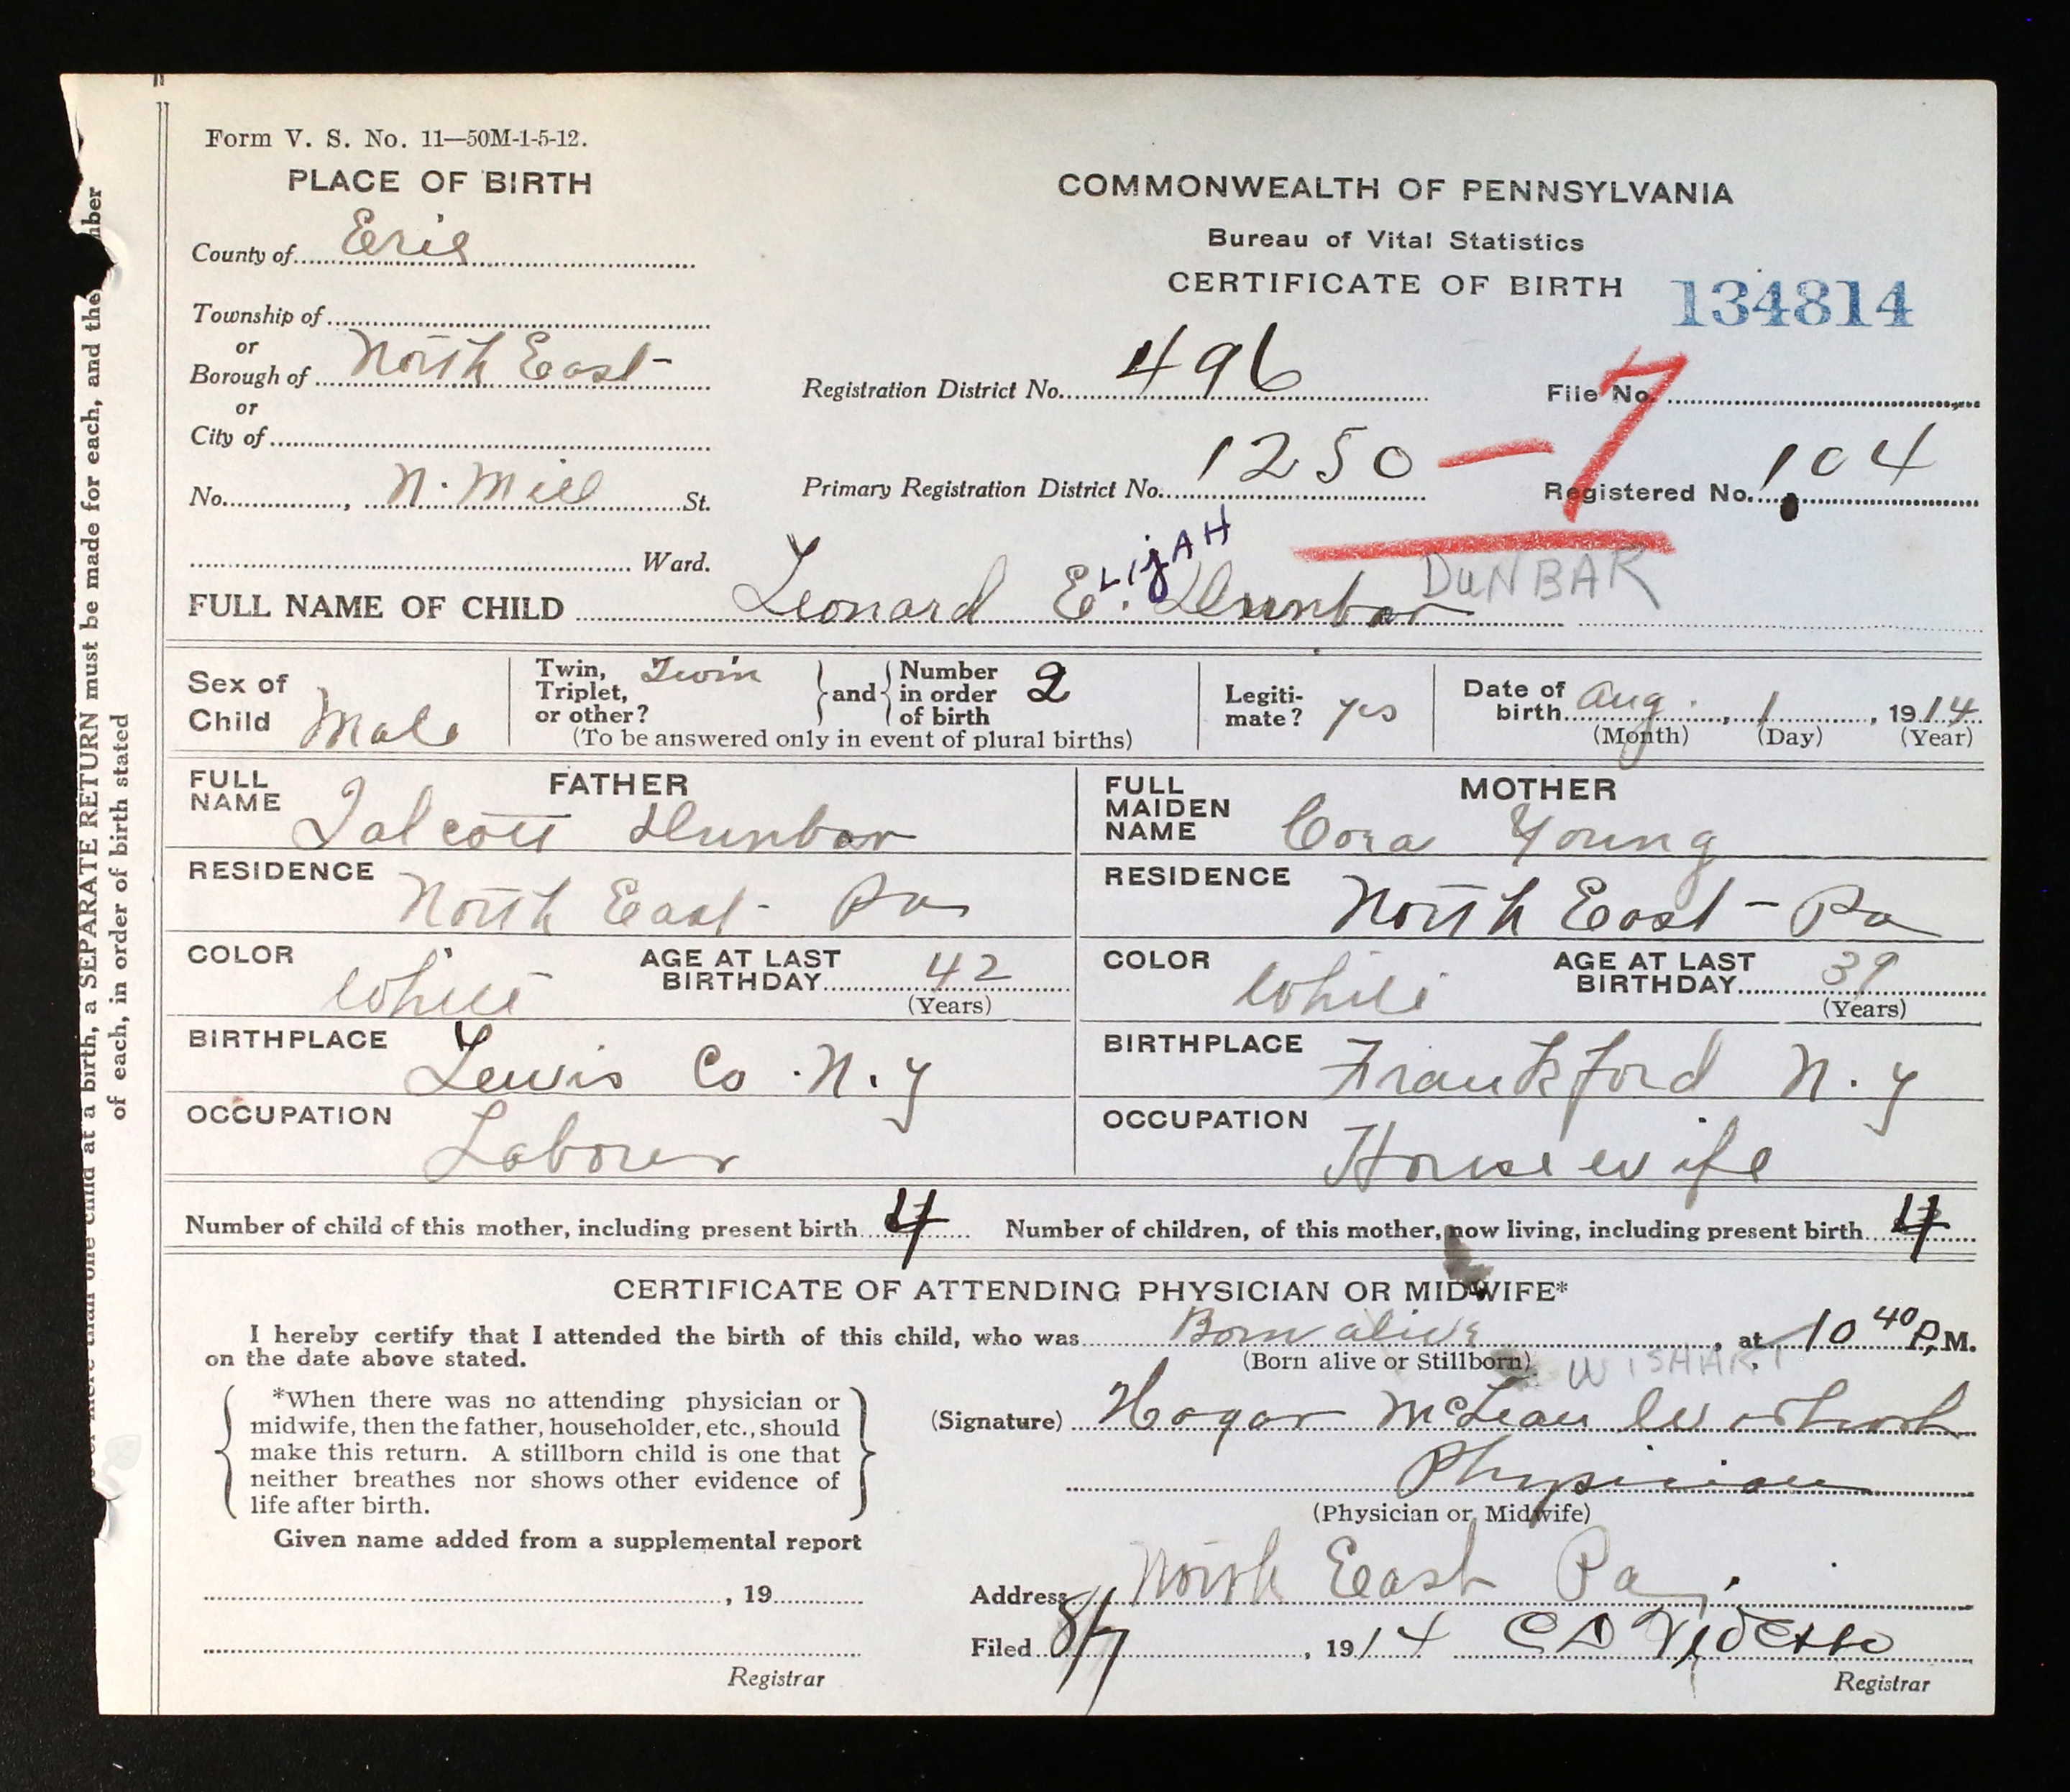 Form V. S. No. 11—50M-1-5-12.
PLACE OF BIRTH
County of Erie
Township of
or
Borough of North East
or
City of
No. , N. Mill St.
Ward.
COMMONWEALTH OF PENNSYLVANIA
Bureau of Vital Statistics
CERTIFICATE OF BIRTH
134814
Registration District No. 496
File No.
Primary Registration District No. 1250 — 7
Registered No. 104
LijAH
DUNBAR
FULL NAME OF CHILD Leonard E. Dunbar
Sex of Child Male
Twin, Triplet, or other? Twin and Number in order of birth 2
(To be answered only in event of plural births)
Legitimate? yes
Date of birth Aug. , 1 , 1914
(Month) (Day) (Year)
FATHER
FULL NAME Talcott Dunbar
RESIDENCE North East - Pa
COLOR White AGE AT LAST BIRTHDAY 42
(Years)
BIRTHPLACE Lewis Co. N. y
OCCUPATION Laborer
MOTHER
FULL MAIDEN NAME Cora Young
RESIDENCE North East - Pa
COLOR White AGE AT LAST BIRTHDAY 39
(Years)
BIRTHPLACE Frankford N. y
OCCUPATION Housewife
Number of child of this mother, including present birth 4 Number of children, of this mother, now living, including present birth 4
CERTIFICATE OF ATTENDING PHYSICIAN OR MIDWIFE*
I hereby certify that I attended the birth of this child, who was Born alive , at 10 40 P. M.
on the date above stated. (Born alive or Stillborn)
WISHART
*When there was no attending physician or
midwife, then the father, householder, etc., should
make this return. A stillborn child is one that
neither breathes nor shows other evidence of
life after birth.
(Signature) Hagar McLean
Physician
(Physician or Midwife)
Given name added from a supplemental report
, 19
Registrar
Address North East Pa
Filed 8/7 , 1914 C D
Registrar
at a birth, a SEPARATE RETURN must be made for each, and the
of each, in order of birth stated